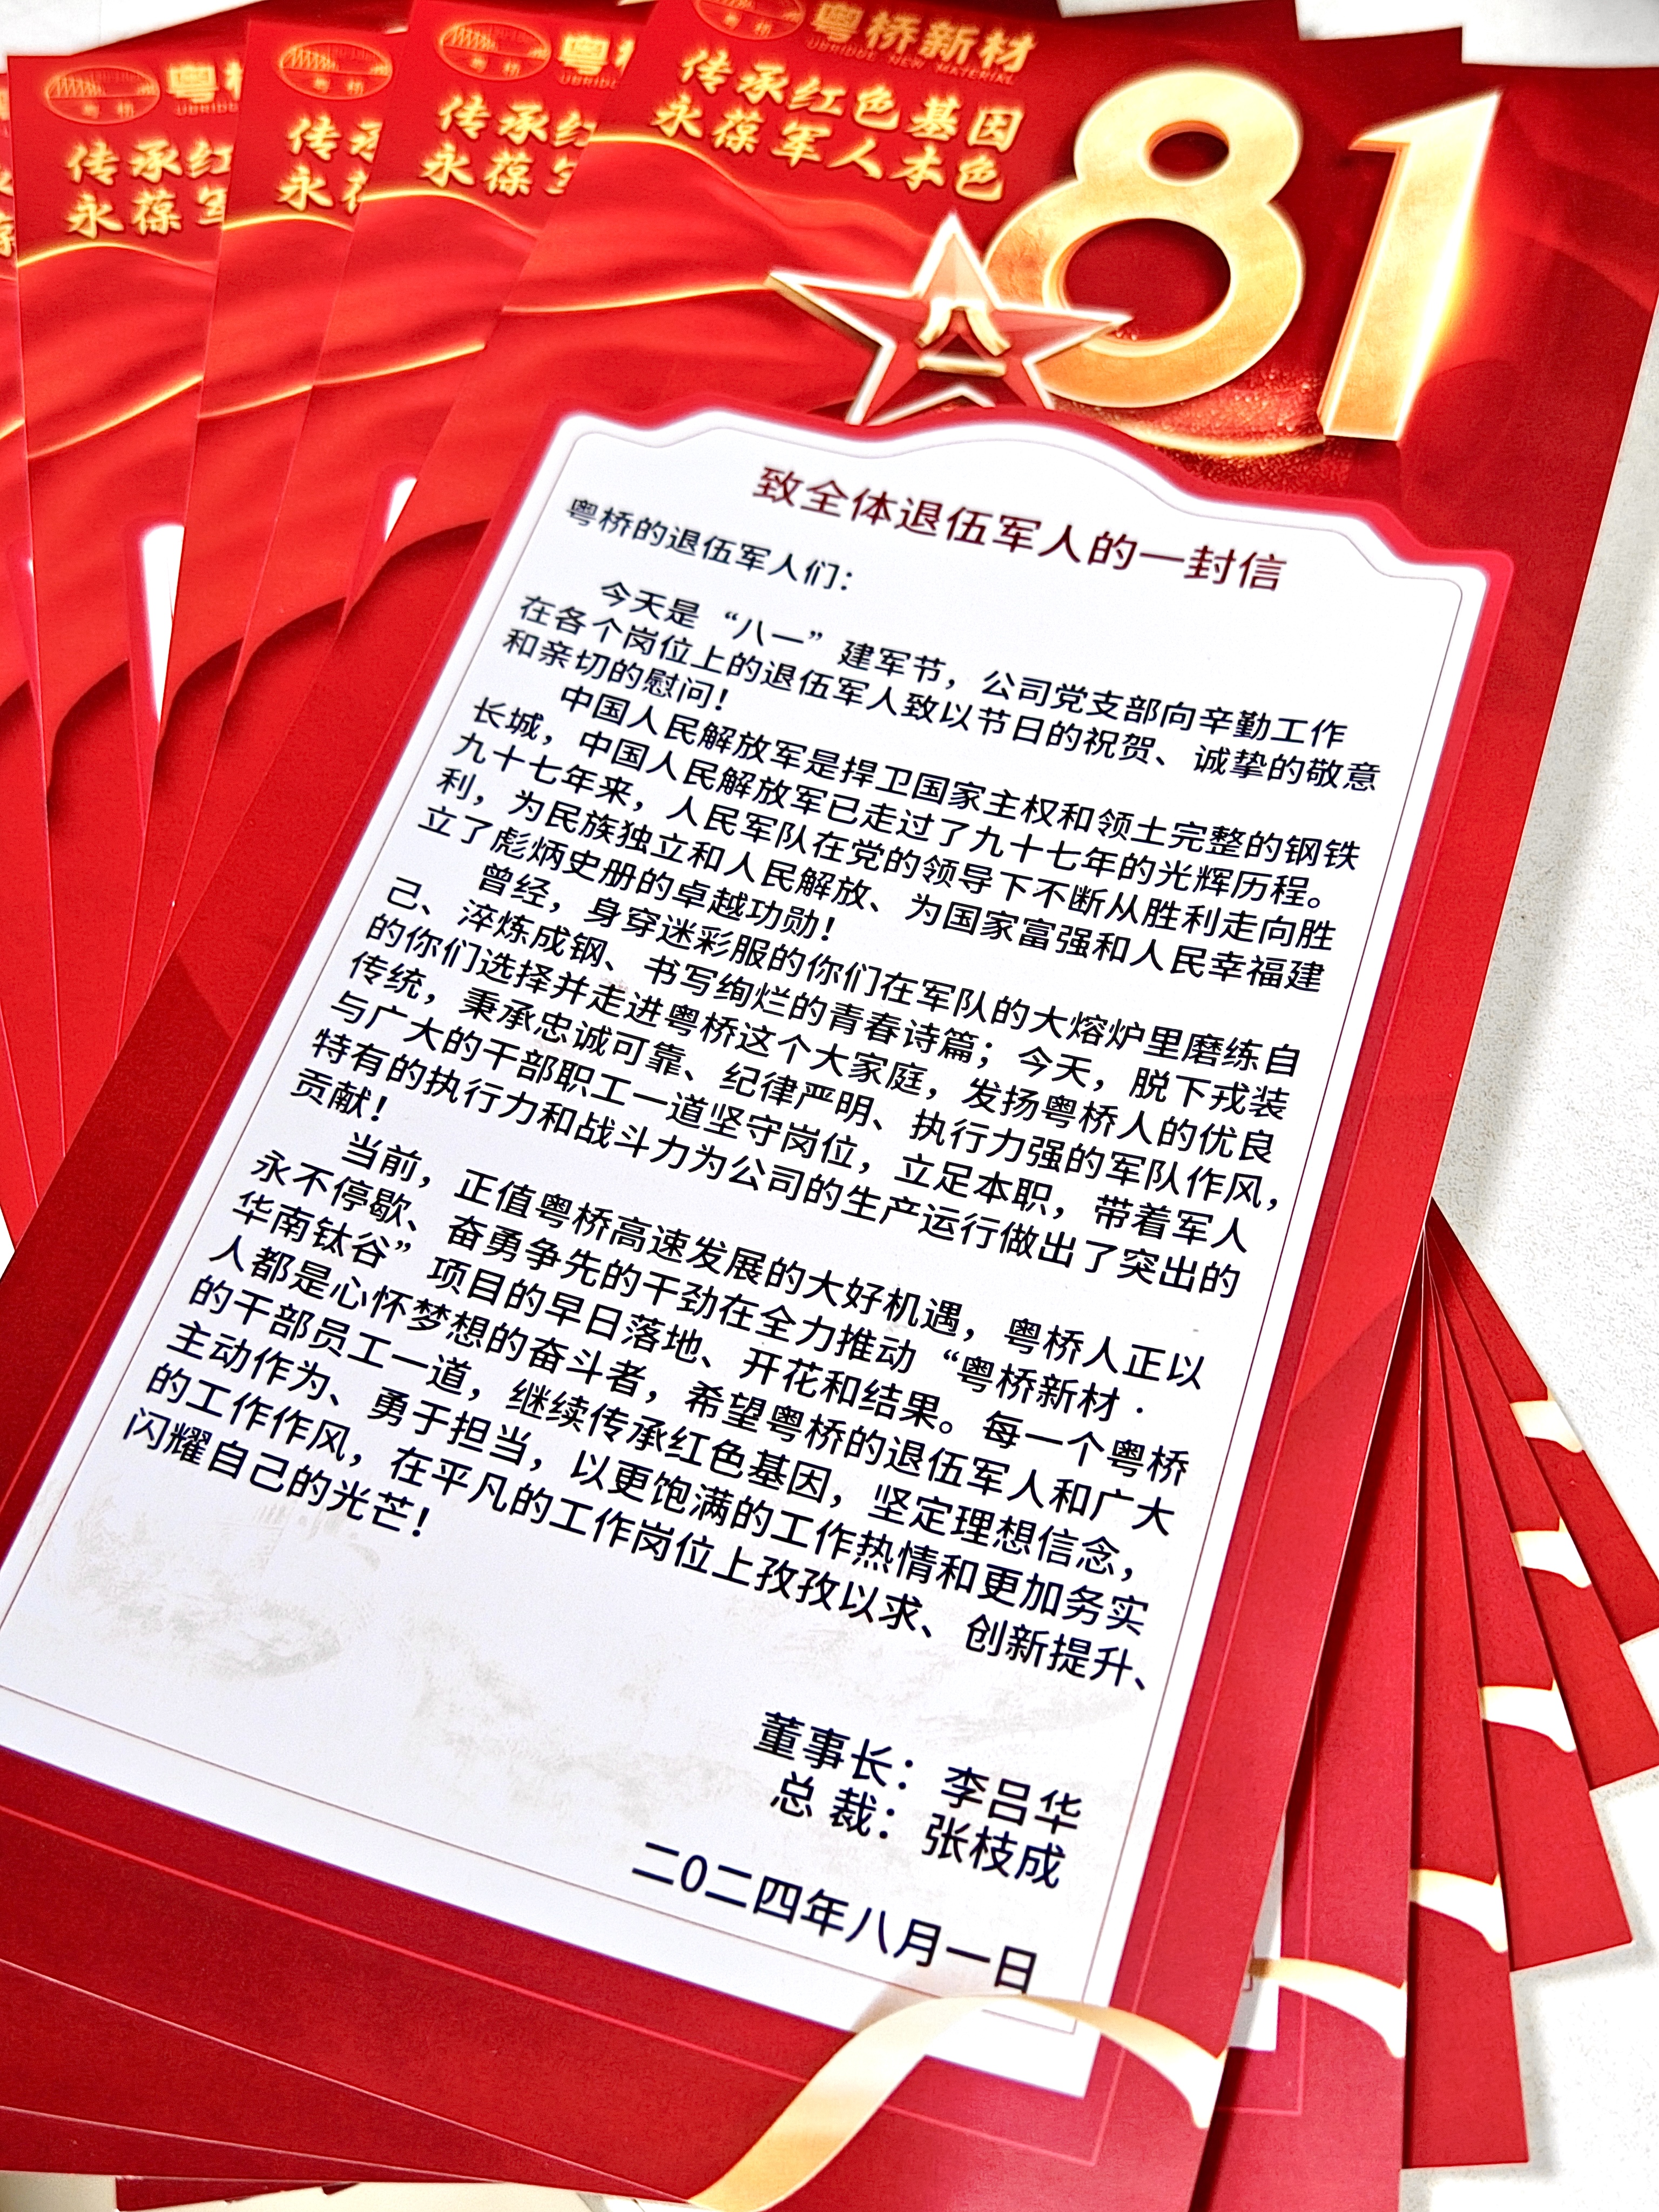 粤桥新材
UBRIDGE NEW MATERIAL
传承红色基因
永葆军人本色
81
八一
致全体退伍军人的一封信
粤桥的退伍军人们：
今天是“八一”建军节，公司党支部向辛勤工作
在各个岗位上的退伍军人致以节日的祝贺、诚挚的敬意
和亲切的慰问！
中国人民解放军是捍卫国家主权和领土完整的钢铁
长城，中国人民解放军已走过了九十七年的光辉历程。
九十七年来，人民军队在党的领导下不断从胜利走向胜
利，为民族独立和人民解放、为国家富强和人民幸福建
立了彪炳史册的卓越功勋！
曾经，身穿迷彩服的你们在军队的大熔炉里磨练自
己、淬炼成钢、书写绚烂的青春诗篇；今天，脱下戎装
的你们选择并走进粤桥这个大家庭，发扬粤桥人的优良
传统，秉承忠诚可靠、纪律严明、执行力强的军队作风，
与广大的干部职工一道坚守岗位，立足本职，带着军人
特有的执行力和战斗力为公司的生产运行做出了突出的
贡献！
当前，正值粤桥高速发展的大好机遇，粤桥人正以
永不停歇、奋勇争先的干劲在全力推动“粤桥新材·
华南钛谷”项目的早日落地、开花和结果。每一个粤桥
人都是心怀梦想的奋斗者，希望粤桥的退伍军人和广大
的干部员工一道，继续传承红色基因，坚定理想信念，
主动作为、勇于担当，以更饱满的工作热情和更加务实
的工作作风，在平凡的工作岗位上孜孜以求、创新提升、
闪耀自己的光芒！
董事长：李吕华
总 裁：张枝成
二0二四年八月一日